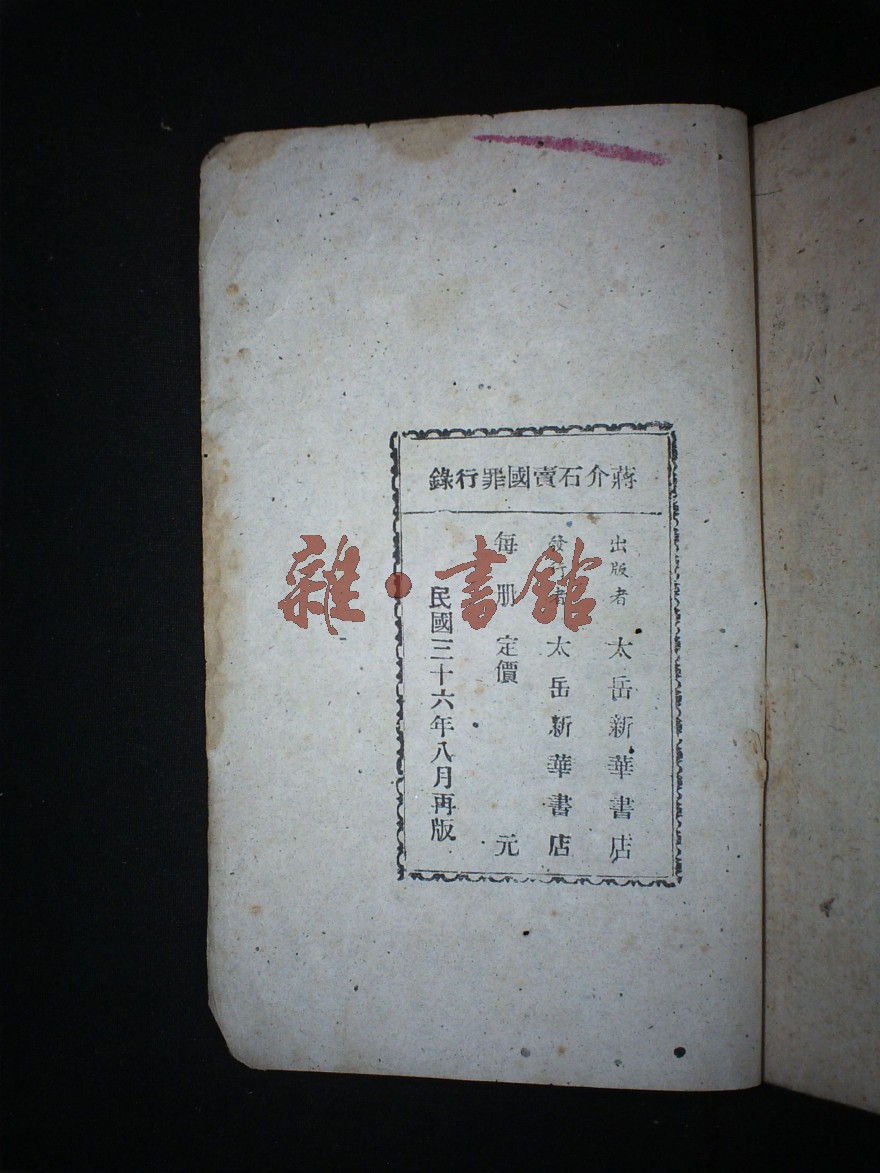 蔣介石賣國罪行錄
出版者 太岳新華書店
發行者 太岳新華書店
每册定價 元
民國三十六年八月再版
雜·書館